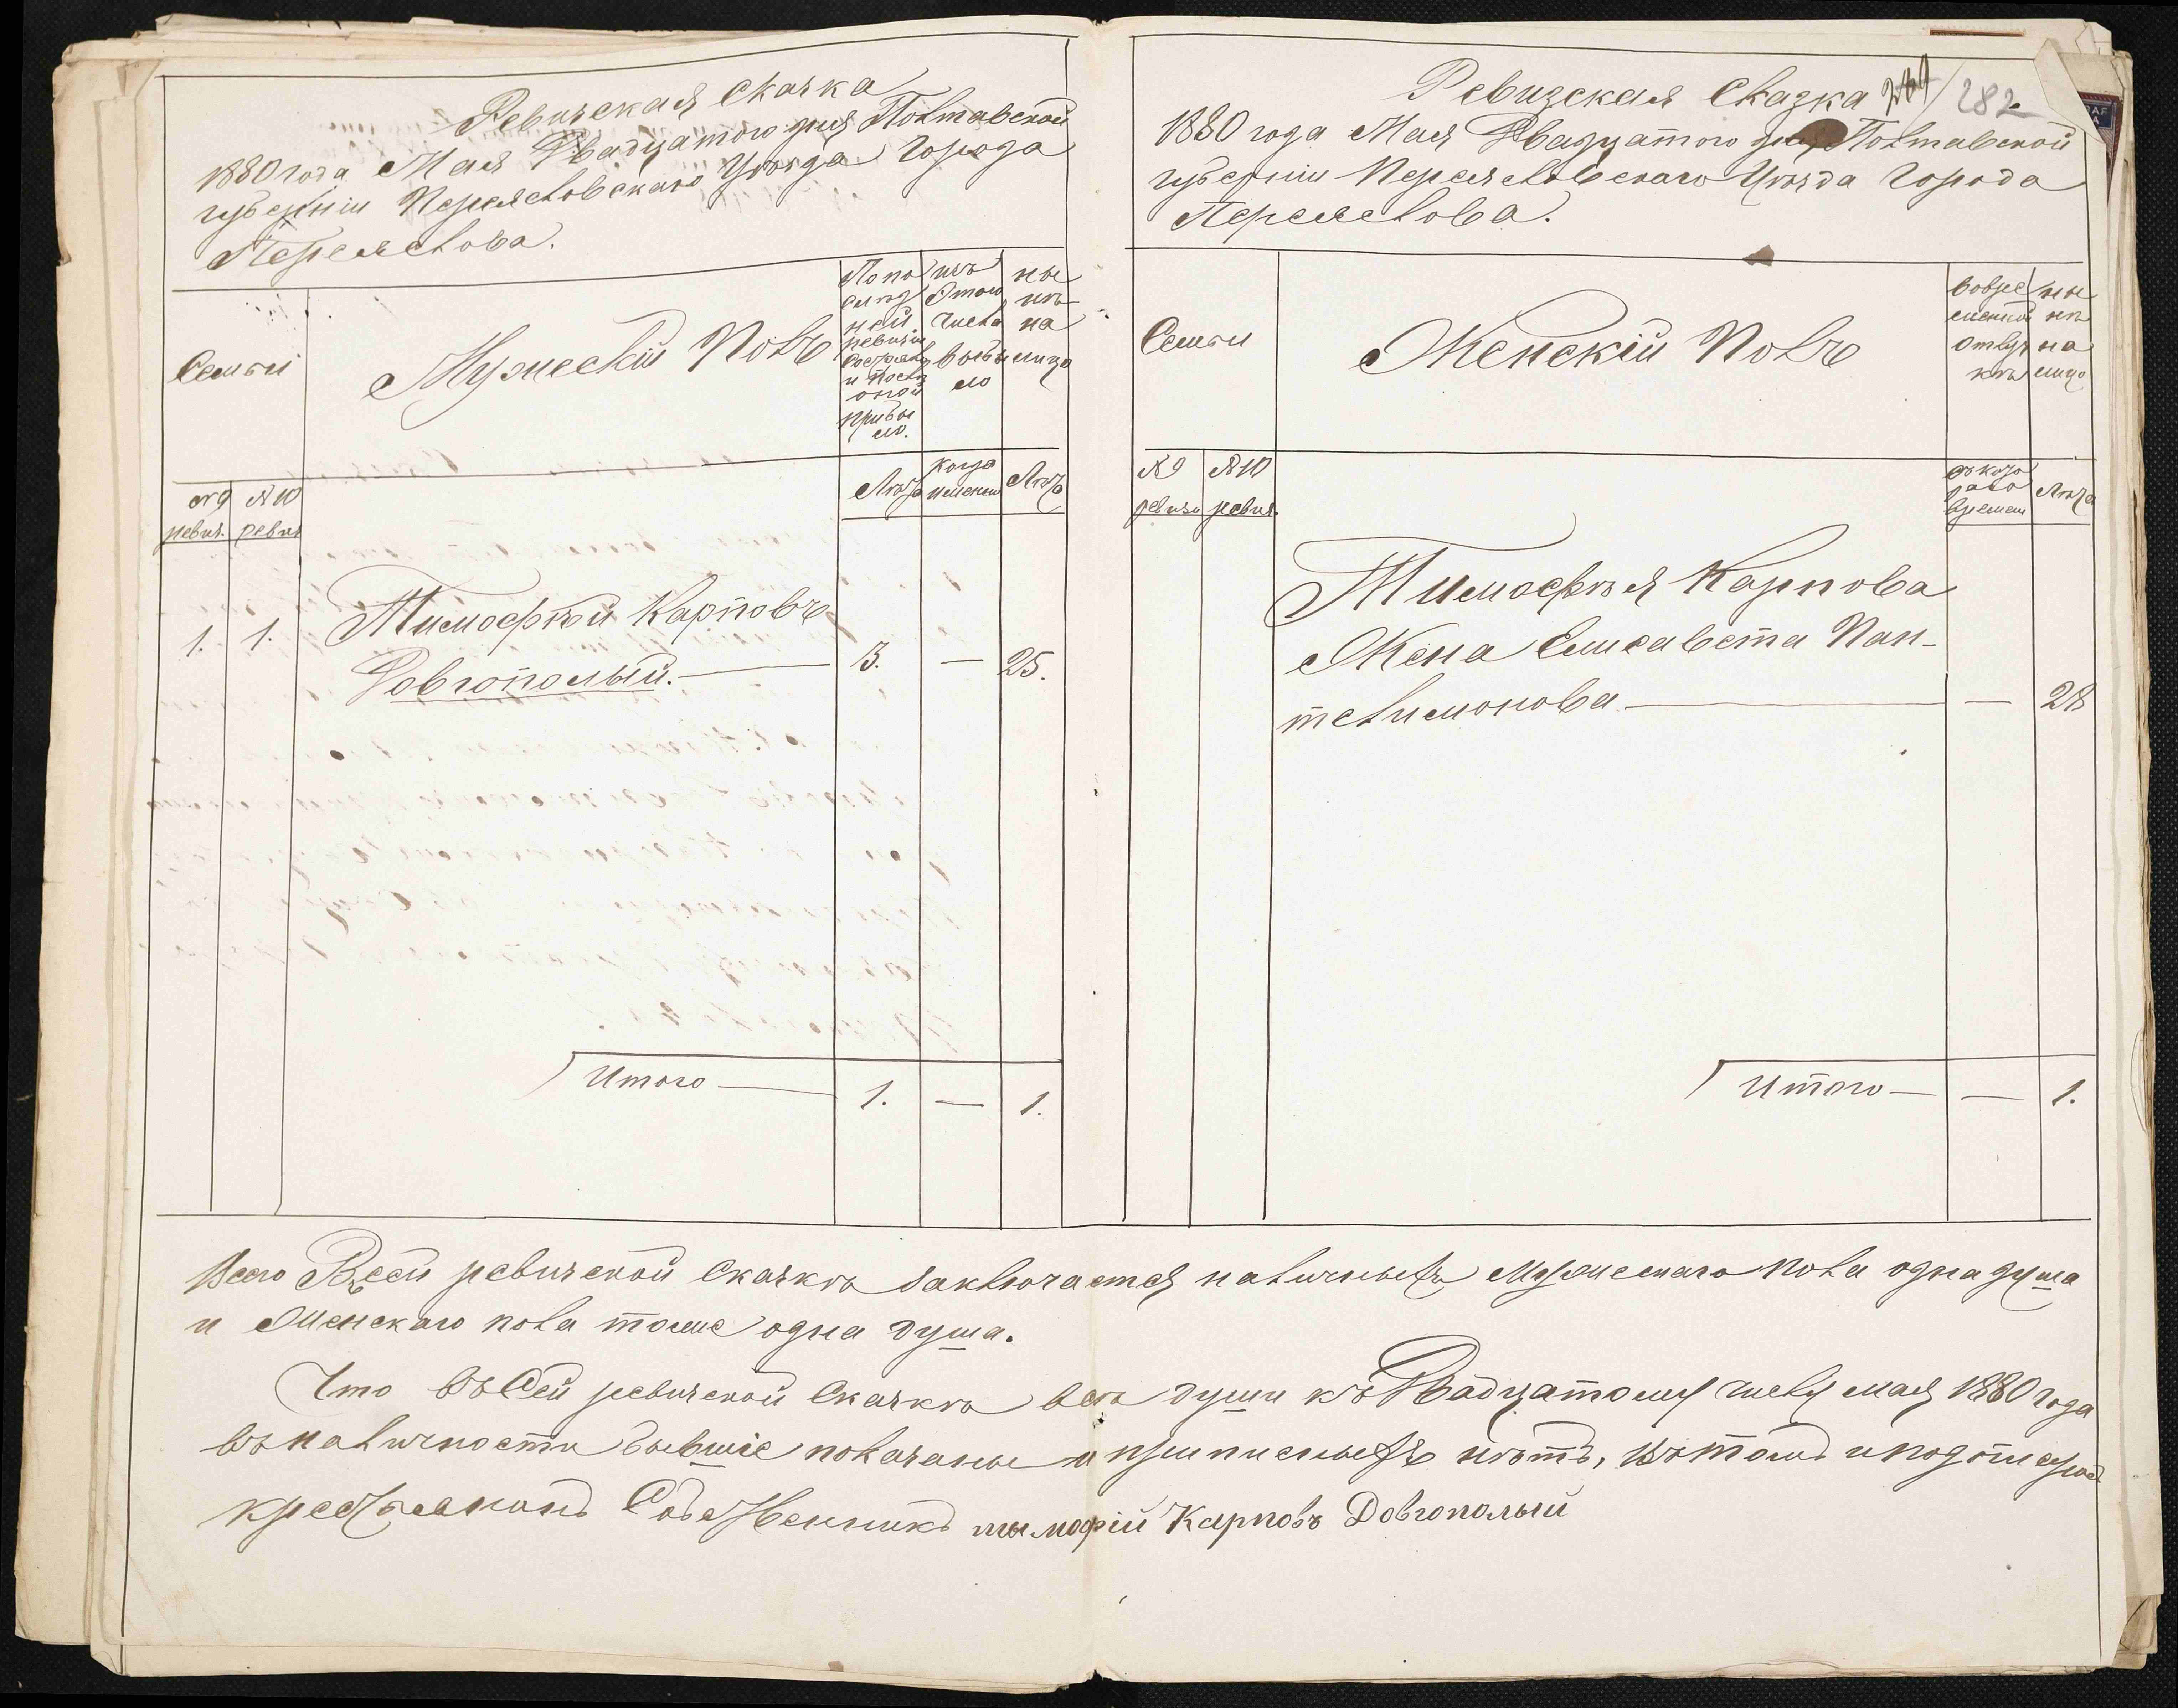 Ревизская Сказка
1880 года Мая Двадцатого дня Полтавской
губерніи Переяславскаго Уѣзда Города
Переяслова.
Семьи
Мужескій Полъ
По по
слѣд
ней
ревизіи
состояло
и послѣ
оной
прибы
ло.
изъ
этого
числа
выбы
ло
ны
нѣ
на
лицо
№ 9
ревиз.
№ 10
ревиз
Лѣта
когда
именно
Лѣта
1. 1. Тимофѣй Карповъ
Довгополый. — 3. — 25.
Итого — 1. — 1.
Ревизская Сказка 282
1880 года Мая Двадцатого дня Полтавской
губерніи Переяславскаго Уѣзда Города
Переяслова.
Семьи
Женскій Полъ
во вре
менной
отлуч
кѣ
ны
нѣ
на
лицо
№ 9
ревизи
№ 10
ревиз.
съ кого
раго
времени
Лѣта
Тимофѣя Карпова
Жена Елисавета Пан-
телимонова — — 28
Итого — — 1.
Всего Всей ревизской сказкѣ заключается наличныхъ Мужескаго пола одна душа
и Женскаго пола тоже одна душа.
Что въ Сей ревизской Сказкѣ всѣ души къ Двадцатому числу мая 1880 года
въ наличности бывшіе показаны и приписныхъ нѣтъ, въ томъ и подписуюсь
Собственникъ тымофій Карповъ Довгополый